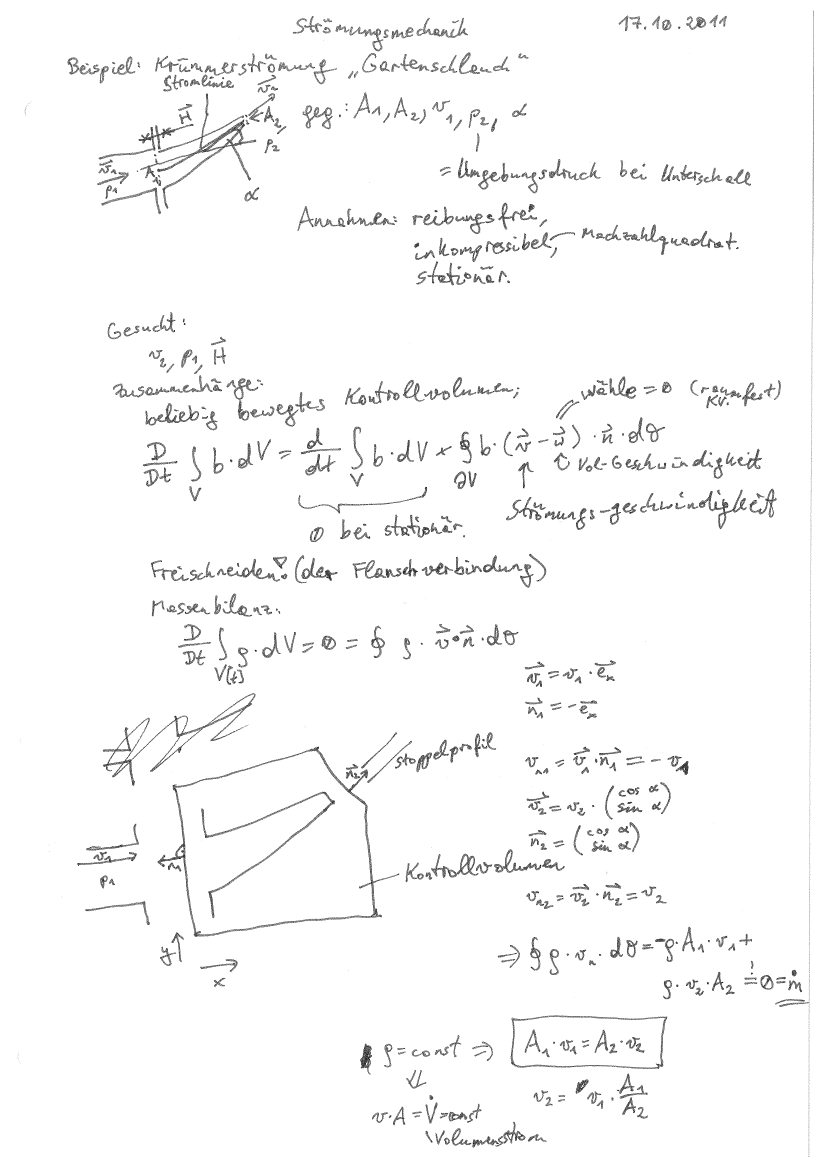 Strömungsmechanik 17.10.2011
Beispiel: Krümmerströmung „Gartenschlauch“
Stromlinie
v⃗₂
H⃗
A₂,
p₂
v⃗₁
p₁
A₁
α
geg.: A₁, A₂, v₁, p₂, α
= Umgebungsdruck bei Unterschall
Annahmen: reibungsfrei,
inkompressibel, Machzahlquadrat.
stationär.
Gesucht:
v₂, p₁, H⃗
Zusammenhänge:
beliebig bewegtes Kontrollvolumen;
wähle = 0 (raumfest)
KV.
D/Dt ∫_V b·dV = d/dt ∫_V b·dV + ∮_∂V b·(v⃗ − u⃗)·n⃗·dσ
Vol-Geschwindigkeit
Strömungs-geschwindigkeit
0 bei stationär.
Freischneiden! (der Flanschverbindung)
Massenbilanz:
D/Dt ∫_V(t) ρ·dV = 0 = ∮ ρ·v⃗∘n⃗·dσ
v⃗₁ = v₁·e⃗ₓ
n⃗₁ = −e⃗ₓ
v_n1 = v⃗₁·n⃗₁ = −v₁
v⃗₂ = v₂·(cos α sin α)
n⃗₂ = (cos α sin α)
v_n2 = v⃗₂·n⃗₂ = v₂
stoppelprofil
n⃗₂
v⃗₁
p₁
n₁
Kontrollvolumen
y
x
⇒ ∮ρ·vₙ·dσ = −ρ·A₁·v₁ +
ρ·v₂·A₂ =! 0 = ṁ
ρ = const ⇒ A₁·v₁ = A₂·v₂
v₂ = v₁·A₁/A₂
v·A = V̇ = const
Volumensstrom